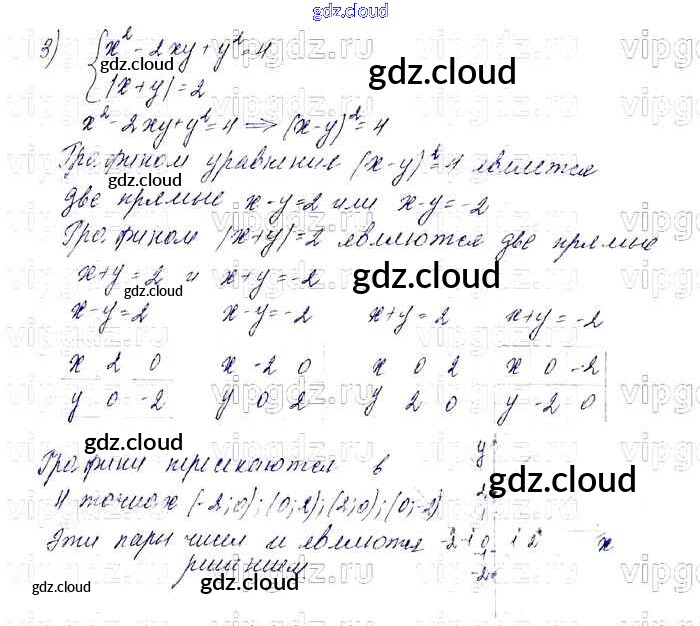 gdz.cloud
3) { x² - 2xy + y² = 4
|x + y| = 2
x² - 2xy + y² = 4 ⟹ (x-y)² = 4
Графиком уравнения (x-y)² = 4 является
две прямые x-y=2 или x-y=-2
Графиком |x+y|=2 являются две прямые
x+y=2 и x+y=-2
x-y=2 x-y=-2 x+y=2 x+y=-2
x 2 0 x -2 0 x 0 2 x 0 -2
y 0 -2 y 0 2 y 2 0 y -2 0
Графики пересекаются в
4 точках (-2;0); (0;2); (2;0); (0;-2)
Эти пары чисел и являются
решением
y
2
1
-2 -1 0 1 2 x
-1
-2
gdz.cloud
gdz.cloud
gdz.cloud
gdz.cloud
gdz.cloud
gdz.cloud
gdz.cloud
gdz.cloud
gdz.cloud
gdz.cloud
vipgdz.ru